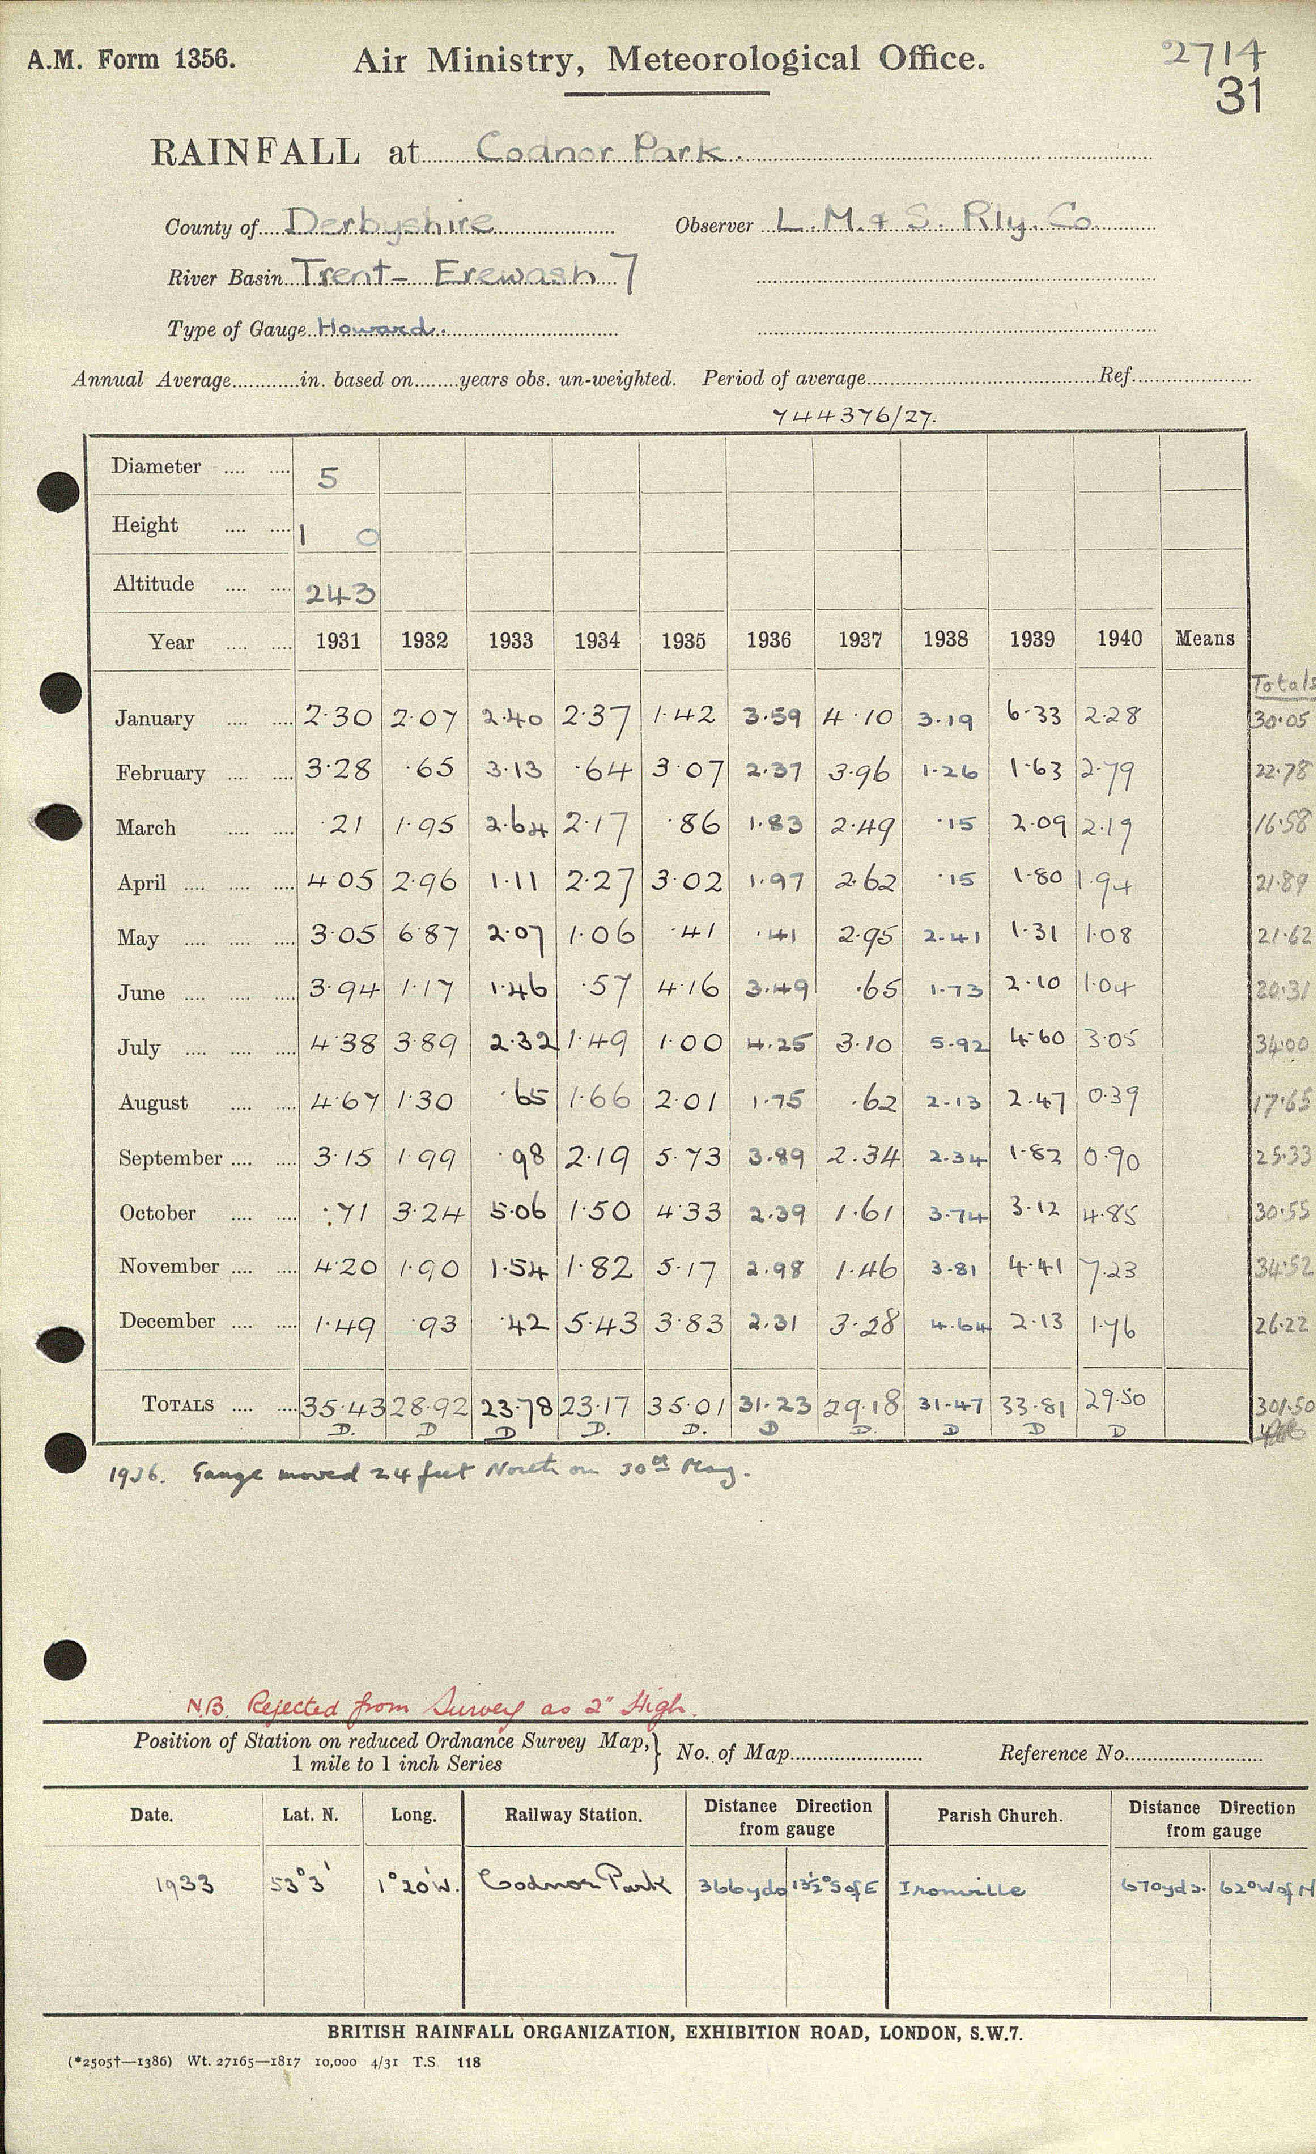 A.M. Form 1356.
Air Ministry, Meteorological Office.
2714
31
RAINFALL at Codnor Park.
County of Derbyshire Observer L. M. & S. Rly. Co.
River Basin Trent - Erewash 7
Type of Gauge Howard.
Annual Average in. based on years obs. un-weighted. Period of average Ref.
744376/27.
Diameter 5
Height 1 0
Altitude 243
Year 1931 1932 1933 1934 1935 1936 1937 1938 1939 1940 Means
Totals
January 2.30 2.07 2.40 2.37 1.42 3.59 4.10 3.19 6.33 2.28 30.05
February 3.28 .65 3.13 .64 3.07 2.37 3.96 1.26 1.63 2.79 22.78
March .21 1.95 2.64 2.17 .86 1.83 2.49 .15 2.09 2.19 16.58
April 4.05 2.96 1.11 2.27 3.02 1.97 2.62 .15 1.80 1.94 21.89
May 3.05 6.87 2.07 1.06 .41 .41 2.95 2.41 1.31 1.08 21.62
June 3.94 1.17 1.46 .57 4.16 3.49 .65 1.73 2.10 1.04 20.31
July 4.38 3.89 2.32 1.49 1.00 4.25 3.10 5.92 4.60 3.05 34.00
August 4.67 1.30 .65 1.66 2.01 1.75 .62 2.13 2.47 0.39 17.65
September 3.15 1.99 .98 2.19 5.73 3.89 2.34 2.34 1.82 0.90 25.33
October .71 3.24 5.06 1.50 4.33 2.39 1.61 3.74 3.12 4.85 30.55
November 4.20 1.90 1.54 1.82 5.17 2.98 1.46 3.81 4.41 7.23 34.52
December 1.49 .93 .42 5.43 3.83 2.31 3.28 4.64 2.13 1.76 26.22
TOTALS 35.43 28.92 23.78 23.17 35.01 31.23 29.18 31.47 33.81 29.50 301.50
D. D D D. D. D D. D D D
1936. Gauge moved 24 feet North on 30th May.
N.B. Rejected from Survey as 2" High.
Position of Station on reduced Ordnance Survey Map, } No. of Map Reference No.
1 mile to 1 inch Series
Date. Lat. N. Long. Railway Station. Distance Direction from gauge Parish Church. Distance Direction from gauge
1933 53°3' 1°20'W. Codnor Park 366yds 13½° S of E Ironville 670yds. 62° W of N
BRITISH RAINFALL ORGANIZATION, EXHIBITION ROAD, LONDON, S.W.7.
(*2505†—1386) Wt. 27165—1817 10,000 4/31 T.S. 118